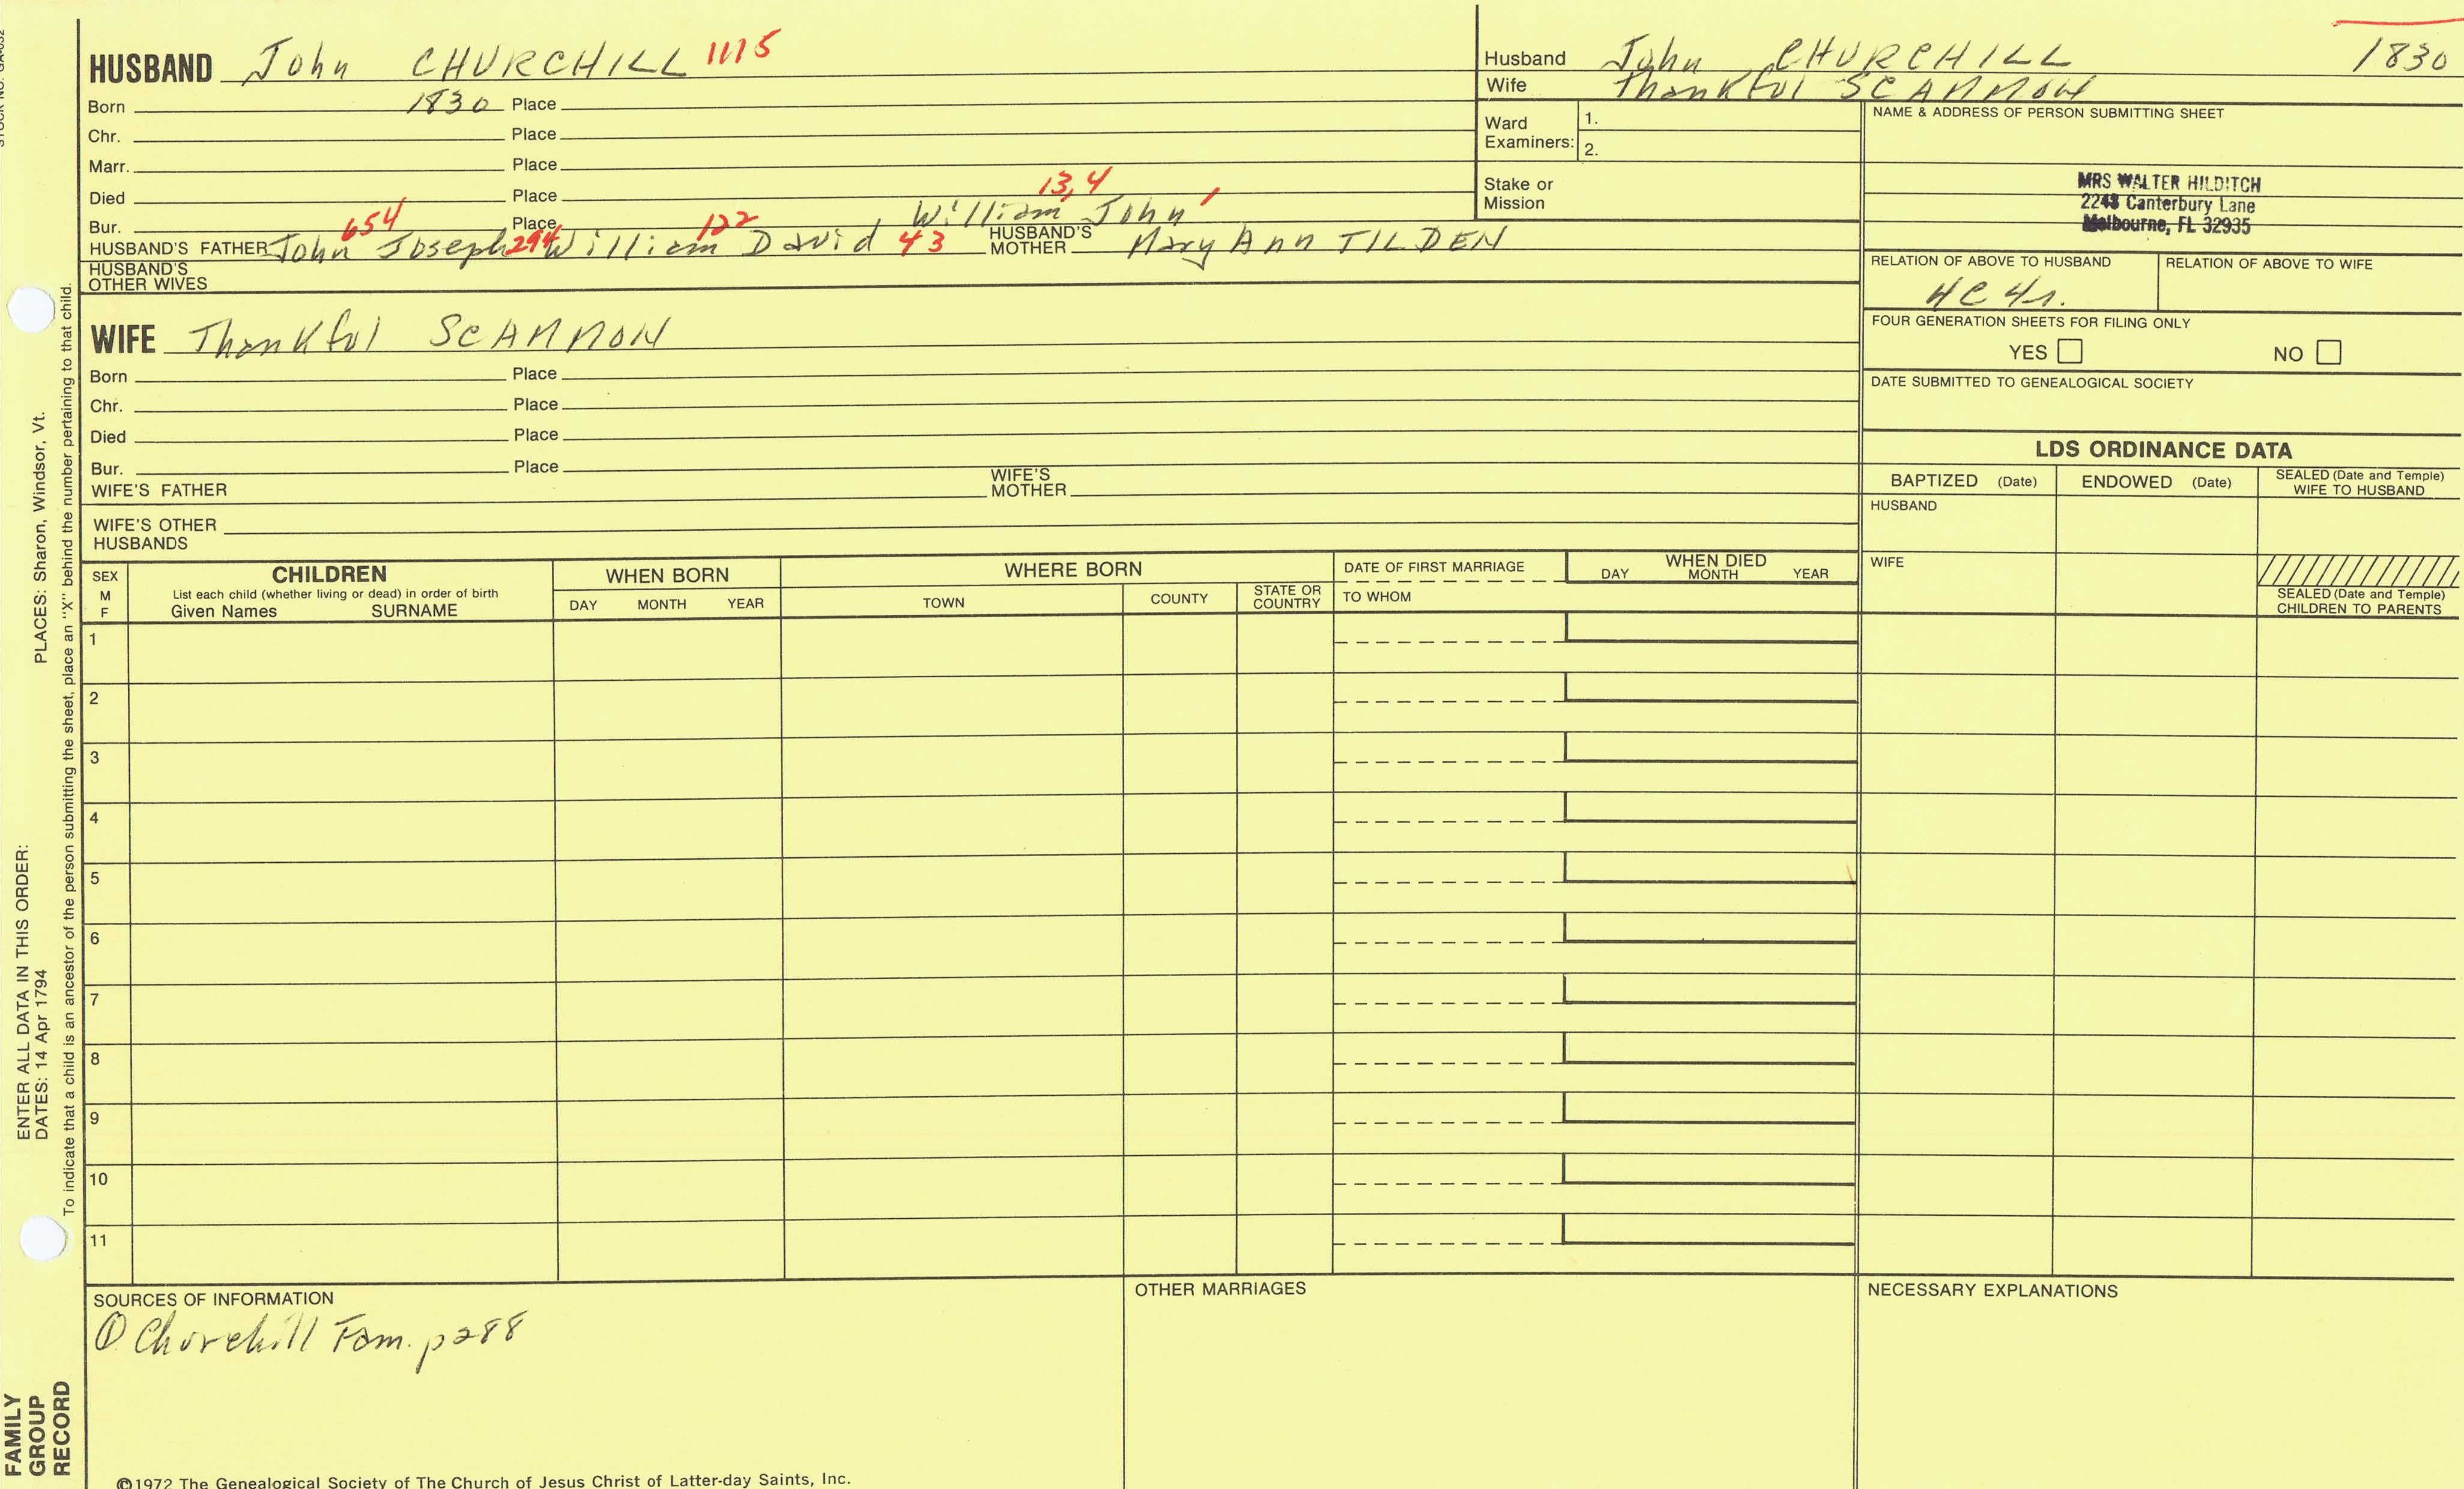 HUSBAND John CHURCHILL 1115
Born 1830 Place
Chr. Place
Marr. Place
Died Place 13,4
Bur. Place William John
654 294 122 43
HUSBAND'S FATHER John Joseph William David HUSBAND'S MOTHER Mary Ann TILDEN
HUSBAND'S OTHER WIVES
Husband John CHURCHILL 1830
Wife Thankful SCAMMON
Ward Examiners: 1.
2.
Stake or Mission
NAME & ADDRESS OF PERSON SUBMITTING SHEET
MRS WALTER HILDITCH
2243 Canterbury Lane
Melbourne, FL 32935
RELATION OF ABOVE TO HUSBAND RELATION OF ABOVE TO WIFE
4C 4r.
FOUR GENERATION SHEETS FOR FILING ONLY
YES NO
DATE SUBMITTED TO GENEALOGICAL SOCIETY
WIFE Thankful SCAMMON
Born Place
Chr. Place
Died Place
Bur. Place
WIFE'S FATHER WIFE'S MOTHER
WIFE'S OTHER HUSBANDS
LDS ORDINANCE DATA
BAPTIZED (Date) ENDOWED (Date) SEALED (Date and Temple) WIFE TO HUSBAND
HUSBAND
WIFE
SEALED (Date and Temple) CHILDREN TO PARENTS
SEX M F
CHILDREN
List each child (whether living or dead) in order of birth
Given Names SURNAME
WHEN BORN
DAY MONTH YEAR
WHERE BORN
TOWN COUNTY STATE OR COUNTRY
DATE OF FIRST MARRIAGE
TO WHOM
WHEN DIED
DAY MONTH YEAR
1
2
3
4
5
6
7
8
9
10
11
SOURCES OF INFORMATION
① Churchill Fam. p288
OTHER MARRIAGES
NECESSARY EXPLANATIONS
©1972 The Genealogical Society of The Church of Jesus Christ of Latter-day Saints, Inc.
FAMILY GROUP RECORD
ENTER ALL DATA IN THIS ORDER:
DATES: 14 Apr 1794 PLACES: Sharon, Windsor, Vt.
To indicate that a child is an ancestor of the person submitting the sheet, place an "X" behind the number pertaining to that child.